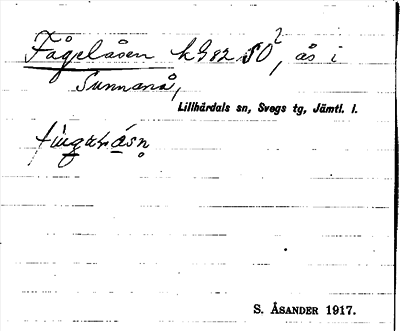 Fågelåsen k 982 SO², ås i
Sunnanå,
Lillhärdals sn, Svegs tg, Jämtl. l.
S. ÅSANDER 1917.